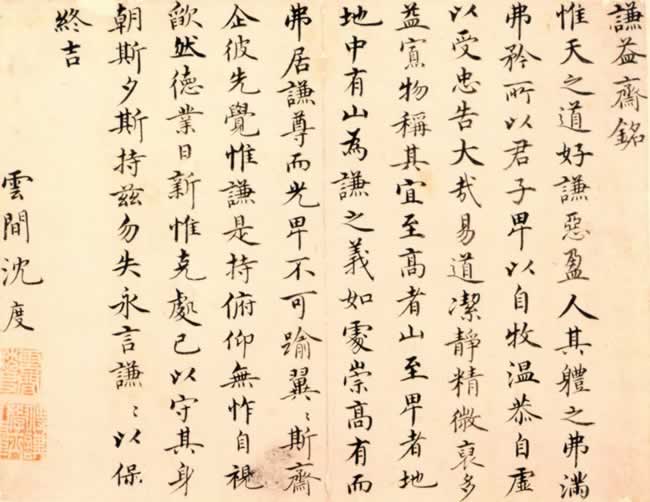 謙益齋銘
惟天之道好謙惡盈人其軆之弗滿
弗矜所以君子卑以自牧温恭自虛
以受忠告大哉易道潔靜精微裒多
益寡物稱其宜至高者山至卑者地
地中有山為謙之義如處崇高有而
弗居謙尊而光卑不可踰翼〻斯齋
企彼先覺惟謙是持俯仰無怍自視
欿然德業日新惟克處已以守其身
朝斯夕斯持茲勿失永言謙〻以保
終吉
雲間沈度